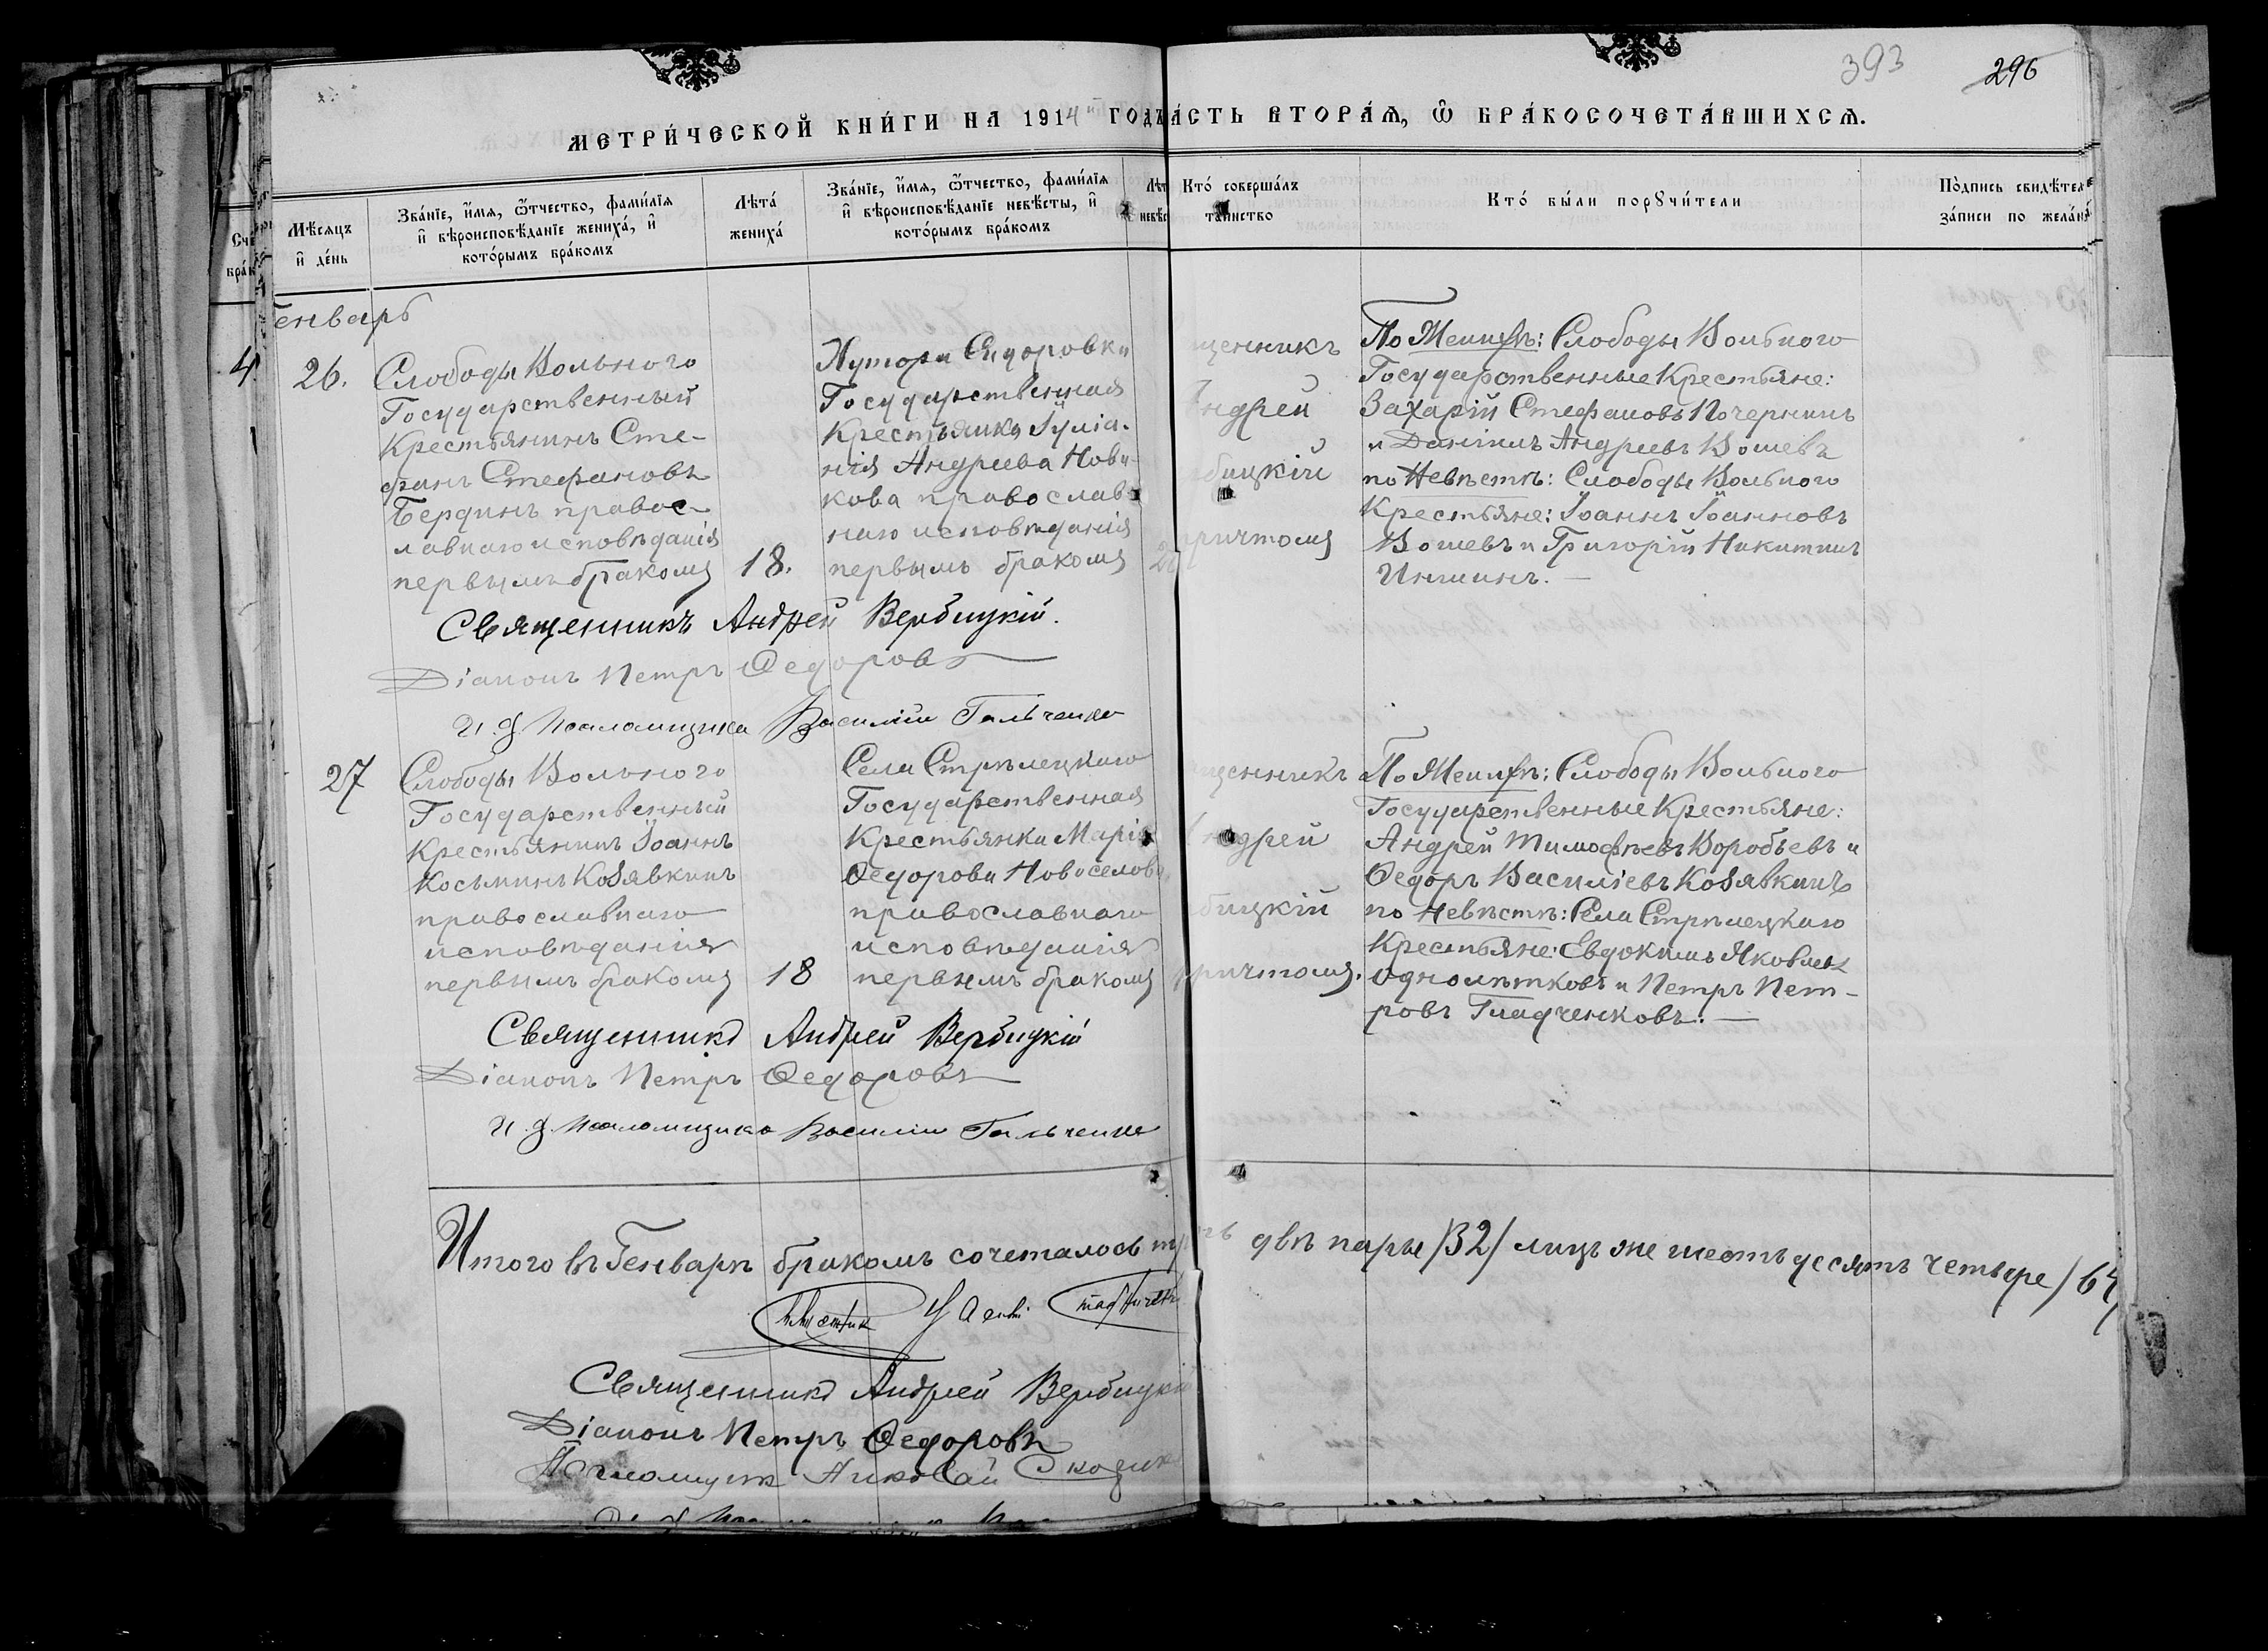 393
296
МЕТРИ́ЧЕСКОЙ КНИ́ГИ НА 1914й ГОДЪ
ЧА́СТЬ ВТОРА́Ѧ, Ѡ҆ БРА́КОСОЧЕТА́ВШИХСѦ.
Мѣ́сѧцъ и҆ де́нь
Зва́нїе, и҆́мѧ, ѻ҆́тчество, фами́лїѧ и҆ вѣроисповѣ́данїе жениха́, и҆ кото́рымъ бра́комъ
Лѣта́ жениха́
Зва́нїе, и҆́мѧ, ѻ҆́тчество, фами́лїѧ и҆ вѣроисповѣ́данїе невѣ́сты, и҆ кото́рымъ бра́комъ
Кто́ соверша́лъ та́инство
Кто́ бы́ли порꙋчи́тели
По́дпись свидѣ́теле
за́писи по жела́нї
Генварь
4.
26.
Слободы Вольного
Государственный
Крестьянинъ Сте-
фанъ Стефановъ
Бердинъ правос-
лавнаго исповѣданія
первымъ бракомъ
18.
Хутора Сидоровки
Государственная
Крестьянка Іуліа-
нія Андреева Нови-
кова православ-
наго исповѣданія
первымъ бракомъ
щенникъ
Андрей
бицкій
причтомъ
По Женихѣ: Слободы Вольного
Государственные Крестьяне:
Захарій Стефановъ Почернинъ
и Даніилъ Андреевъ Вошевъ
по Невѣстѣ: Слободы Вольного
Крестьяне: Іоаннъ Іоанновъ
Вошевъ и Григорій Никитинъ
Иншинъ.—
Священникъ Андрей Вербицкій.
Діаконъ Петръ Ѳедоровъ
И. д. Псаломщика Василій Гальченко
27
Слободы Вольного
Государственный
Крестьянинъ Іоаннъ
Косьминъ Козявкинъ
православнаго
исповѣданія
первымъ бракомъ
18
Села Стрѣлецкаго
Государственная
Крестьянка Марія
Ѳедорова Новоселова
православнаго
исповѣданія
первымъ бракомъ
щенникъ
Андрей
бицкій
причтомъ.
По Женихѣ: Слободы Вольного
Государственные Крестьяне:
Андрей Тимофѣевъ Воробьевъ и
Ѳедоръ Василіевъ Козявкинъ
по Невѣстѣ: Села Стрѣлецкаго
Крестьяне: Евдокимъ Яковлевъ
Однолѣтковъ и Петръ Пет-
ровъ Гладченковъ.—
Священникъ Андрей Вербицкій
Діаконъ Петръ Ѳедоровъ
И. д. Псаломщика Василій Гальченко
Итого въ Генварѣ бракомъ сочеталось двѣ пары /32/ лицъ же шестьдесятъ четыре /64/
Священникъ Андрей Вербицкій
Діаконъ Петръ Ѳедоровъ
Псаломщик Николай